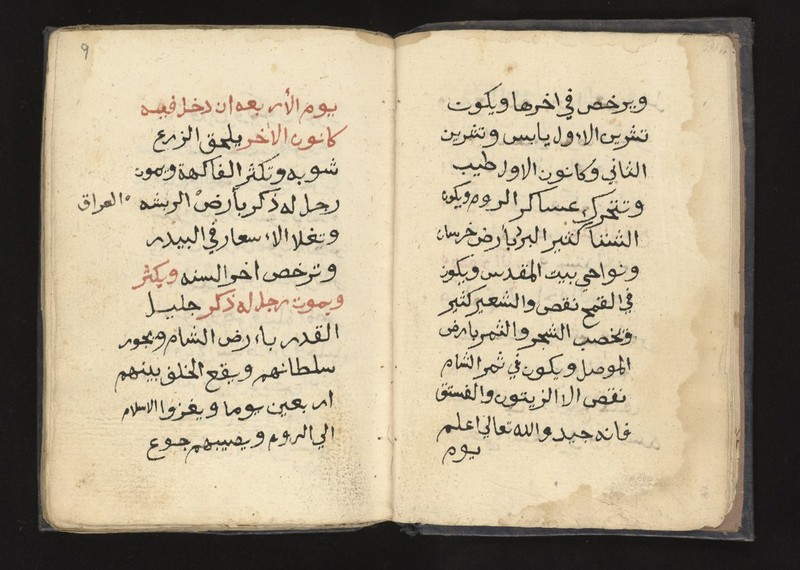 ويرخص في اخرها ويكون
تشرين الاول يابس وتشرين
الثاني وكانون الاول طيب
وتتحرك عساكر الروم ويكون
الشتا كثير البرد بأرض خرسان
ونواحي بيت المقدس ويكون
في القمح نقص والشعير كثير
وتخصب الشجر والثمر بارض
الموصل ويكون في ثمر الشام
نقص الا الزيتون والفستق
فانه جيد والله تعالى اعلم
يوم
9
يوم الأربعه ان دخل فيه
كانون الاخر يلحق الزرع
شوبه وتكثر الفاكهة ويموت
رجل له ذكر بأرض الريشه
العراق
وتغلا الاسعار في البيدر
وترخص اخر السنه ويكثر
ويموت رجل له ذكر جليل
القدر بارض الشام ويجور
سلطانهم ويقع الخلق بينهم
اربعين يوما ويغزوا الاسلام
الى الروم ويصيبهم جوع